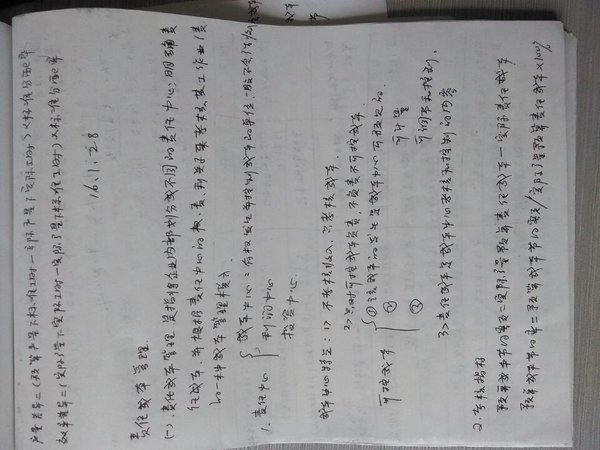 产量差异=(预算产量下标准工时-实际产量下实际工时)×标准分配率
效率差异=(实际产量下实际工时-实际产量下标准工时)×标准分配率
16.1.28
责任成本管理.
(一). 责任成本管理. 是指将企业内部划分成不同的责任中心,明确责
任成本,并根据责任中心的权、责、利关系来考核其工作业绩
的一种成本管理模式.
1. 责任中心 成本中心:有权发生并控制成本的单位,
利润中心
投资中心.
成本中心特点: 1> 不考核收入,只考核成本.
2> 只对可控成本负责,不负责不可控成本
可控成本 ①该成本的发生是成本中心可预见的
② 可计量
③ 可调节和控制.
3> 责任成本是成本中心考核和控制的内容
2. 考核指标
预算成本节约额=实际产量预算责任成本-实际责任成本
预算成本节约率=预算成本节约额/实际产量预算责任成本×100%